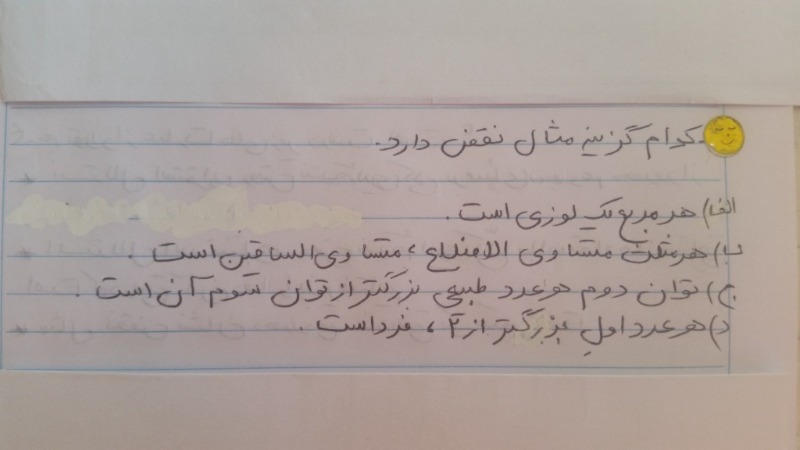 کدام گزینه مثال نقض دارد.
الف) هر مربع یک لوزی است.
ب) هر مثلث متساوی الاضلاع، متساوی الساقین است.
ج) توان دوم هر عدد طبیعی بزرگتر از توان سوم آن است.
د) هر عدد اول بزرگتر از ۲، فرد است.